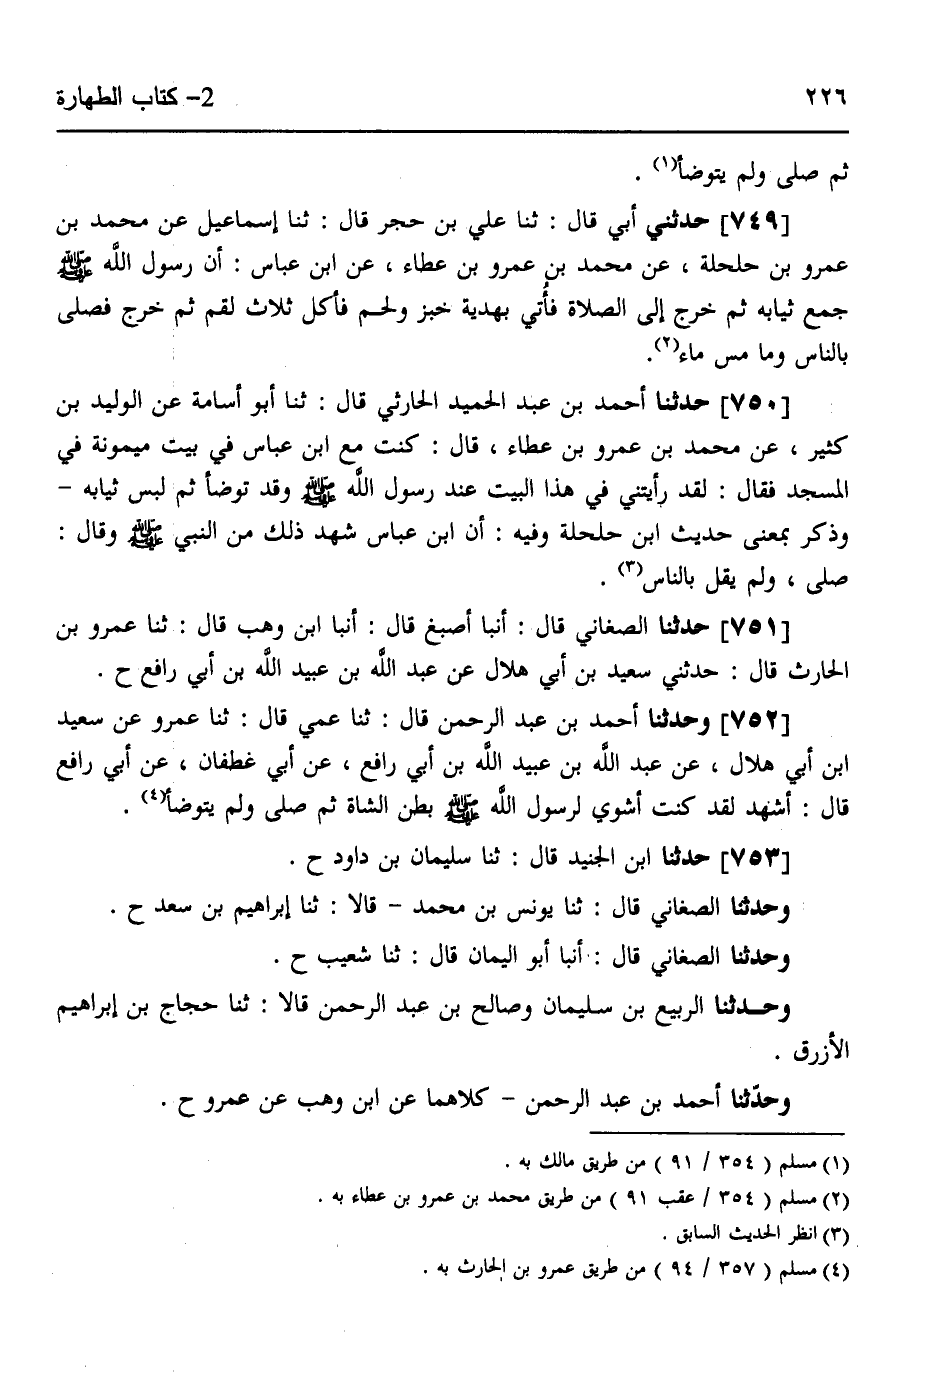 ٢٢٦ 2- كتاب الطهارة
ثم صلى ولم يتوضأ(١) .
[٧٤٩] حدثني أبي قال : ثنا علي بن حجر قال : ثنا إسماعيل عن محمد بن
عمرو بن حلحلة ، عن محمد بن عمرو بن عطاء ، عن ابن عباس : أن رسول اللَّه ﷺ
جمع ثيابه ثم خرج إلى الصلاة فأُتي بهدية خبز ولحم فأكل ثلاث لقم ثم خرج فصلى
بالناس وما مس ماء(٢).
[٧٥٠] حدثنا أحمد بن عبد الحميد الحارثي قال : ثنا أبو أسامة عن الوليد بن
كثير ، عن محمد بن عمرو بن عطاء ، قال : كنت مع ابن عباس في بيت ميمونة في
المسجد فقال : لقد رأيتني في هذا البيت عند رسول اللَّه ﷺ وقد توضأ ثم لبس ثيابه –
وذكر بمعنى حديث ابن حلحلة وفيه : أن ابن عباس شهد ذلك من النبي ﷺ وقال :
صلى ، ولم يقل بالناس(٣) .
[٧٥١] حدثنا الصغاني قال : أنبا أصبغ قال : أنبا ابن وهب قال : ثنا عمرو بن
الحارث قال : حدثني سعيد بن أبي هلال عن عبد اللَّه بن عبيد اللَّه بن أبي رافع ح .
[٧٥٢] وحدثنا أحمد بن عبد الرحمن قال : ثنا عمي قال : ثنا عمرو عن سعيد
ابن أبي هلال ، عن عبد اللَّه بن عبيد اللَّه بن أبي رافع ، عن أبي غطفان ، عن أبي رافع
قال : أشهد لقد كنت أشوي لرسول اللَّه ﷺ بطن الشاة ثم صلى ولم يتوضأ(٤) .
[٧٥٣] حدثنا ابن الجنيد قال : ثنا سليمان بن داود ح .
وحدثنا الصغاني قال : ثنا يونس بن محمد – قالا : ثنا إبراهيم بن سعد ح .
وحدثنا الصغاني قال : أنبا أبو اليمان قال : ثنا شعيب ح .
وحـدثنا الربيع بن سليمان وصالح بن عبد الرحمن قالا : ثنا حجاج بن إبراهيم
الأزرق .
وحدّثنا أحمد بن عبد الرحمن – كلاهما عن ابن وهب عن عمرو ح .
(١) مسلم ( ٣٥٤ / ٩١ ) من طريق مالك به .
(٢) مسلم ( ٣٥٤ / عقب ٩١ ) من طريق محمد بن عمرو بن عطاء به .
(٣) انظر الحديث السابق .
(٤) مسلم ( ٣٥٧ / ٩٤ ) من طريق عمرو بن الحارث به .